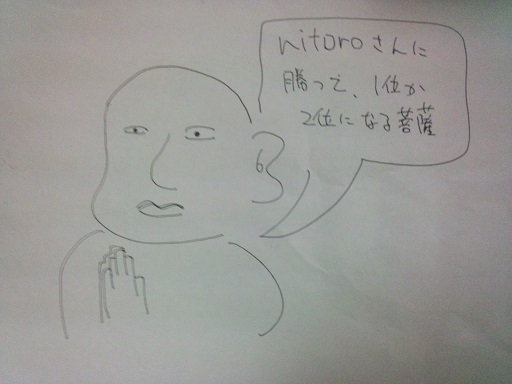 nitoroさんに
勝って、1位か
2位になる菩薩